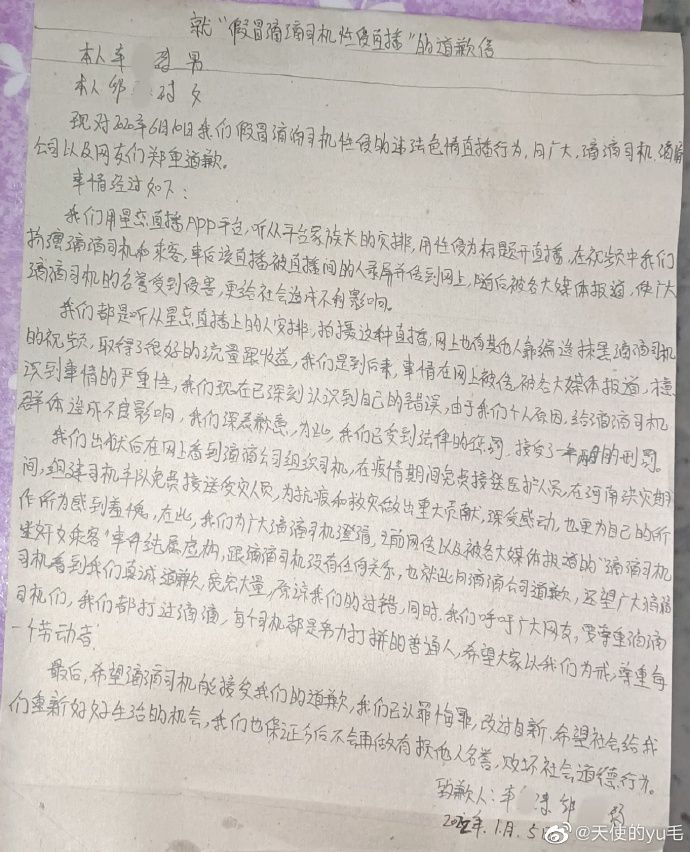 就“假冒滴滴司机性侵直播”的道歉信
本人 男
本人邹 女
现对2020年6月10日我们假冒滴滴司机性侵的违法色情直播行为,向广大,滴滴司机.滴滴
公司以及网友们郑重道歉。
事情经过如下:
我们用星恋直播APP平台,听从平台家族长的安排,用性侵为标题开直播,在视频中我们
扮演滴滴司机和乘客,事后该直播被直播间的人录屏并传到网上,随后被各大媒体报道,使广大
滴滴司机的名誉受到侵害,更给社会造成不利影响。
我们都是听从星恋直播上的人安排,拍摄这种直播,网上也有其他人靠编造抹黑滴滴司机
的视频,取得了很好的流量跟收益,我们是到后来,事情在网上被传,被各大媒体报道,才意
识到事情的严重性,我们现在已深刻认识到自己的错误,由于我们个人原因,给滴滴司机
群体造成不良影响,我们深表歉意,为此,我们已受到法律的惩罚.接受了一年的刑罚。
我们出狱后在网上看到滴滴公司组织司机,在疫情期间免费接送医护人员,在河南洪灾期
间,组建司机车队免费接送受灾人员,为抗疫和救灾做出重大贡献,深受感动,也更为自己的所
作所为感到羞愧,在此,我们为广大滴滴司机澄清,之前网传以及被各大媒体报道的“滴滴司机
迷奸女乘客”事件纯属虚构,跟滴滴司机没有任何关系,也就此向滴滴公司道歉,还望广大滴滴
司机看到我们真诚道歉,宽宏大量,原谅我们的过错,同时.我们呼吁广大网友,要尊重滴滴
司机们,我们都打过滴滴,每个司机都是努力打拼的普通人,希望大家以我们为戒,尊重每
一个劳动者!
最后,希望滴滴司机能接受我们的道歉,我们已认罪悔罪,改过自新.希望社会给我
们重新好好生活的机会,我们也保证今后不会再做有损他人名誉,败坏社会道德行为。
致歉人: 邹
2022年.1月.5日
@天使的yu毛